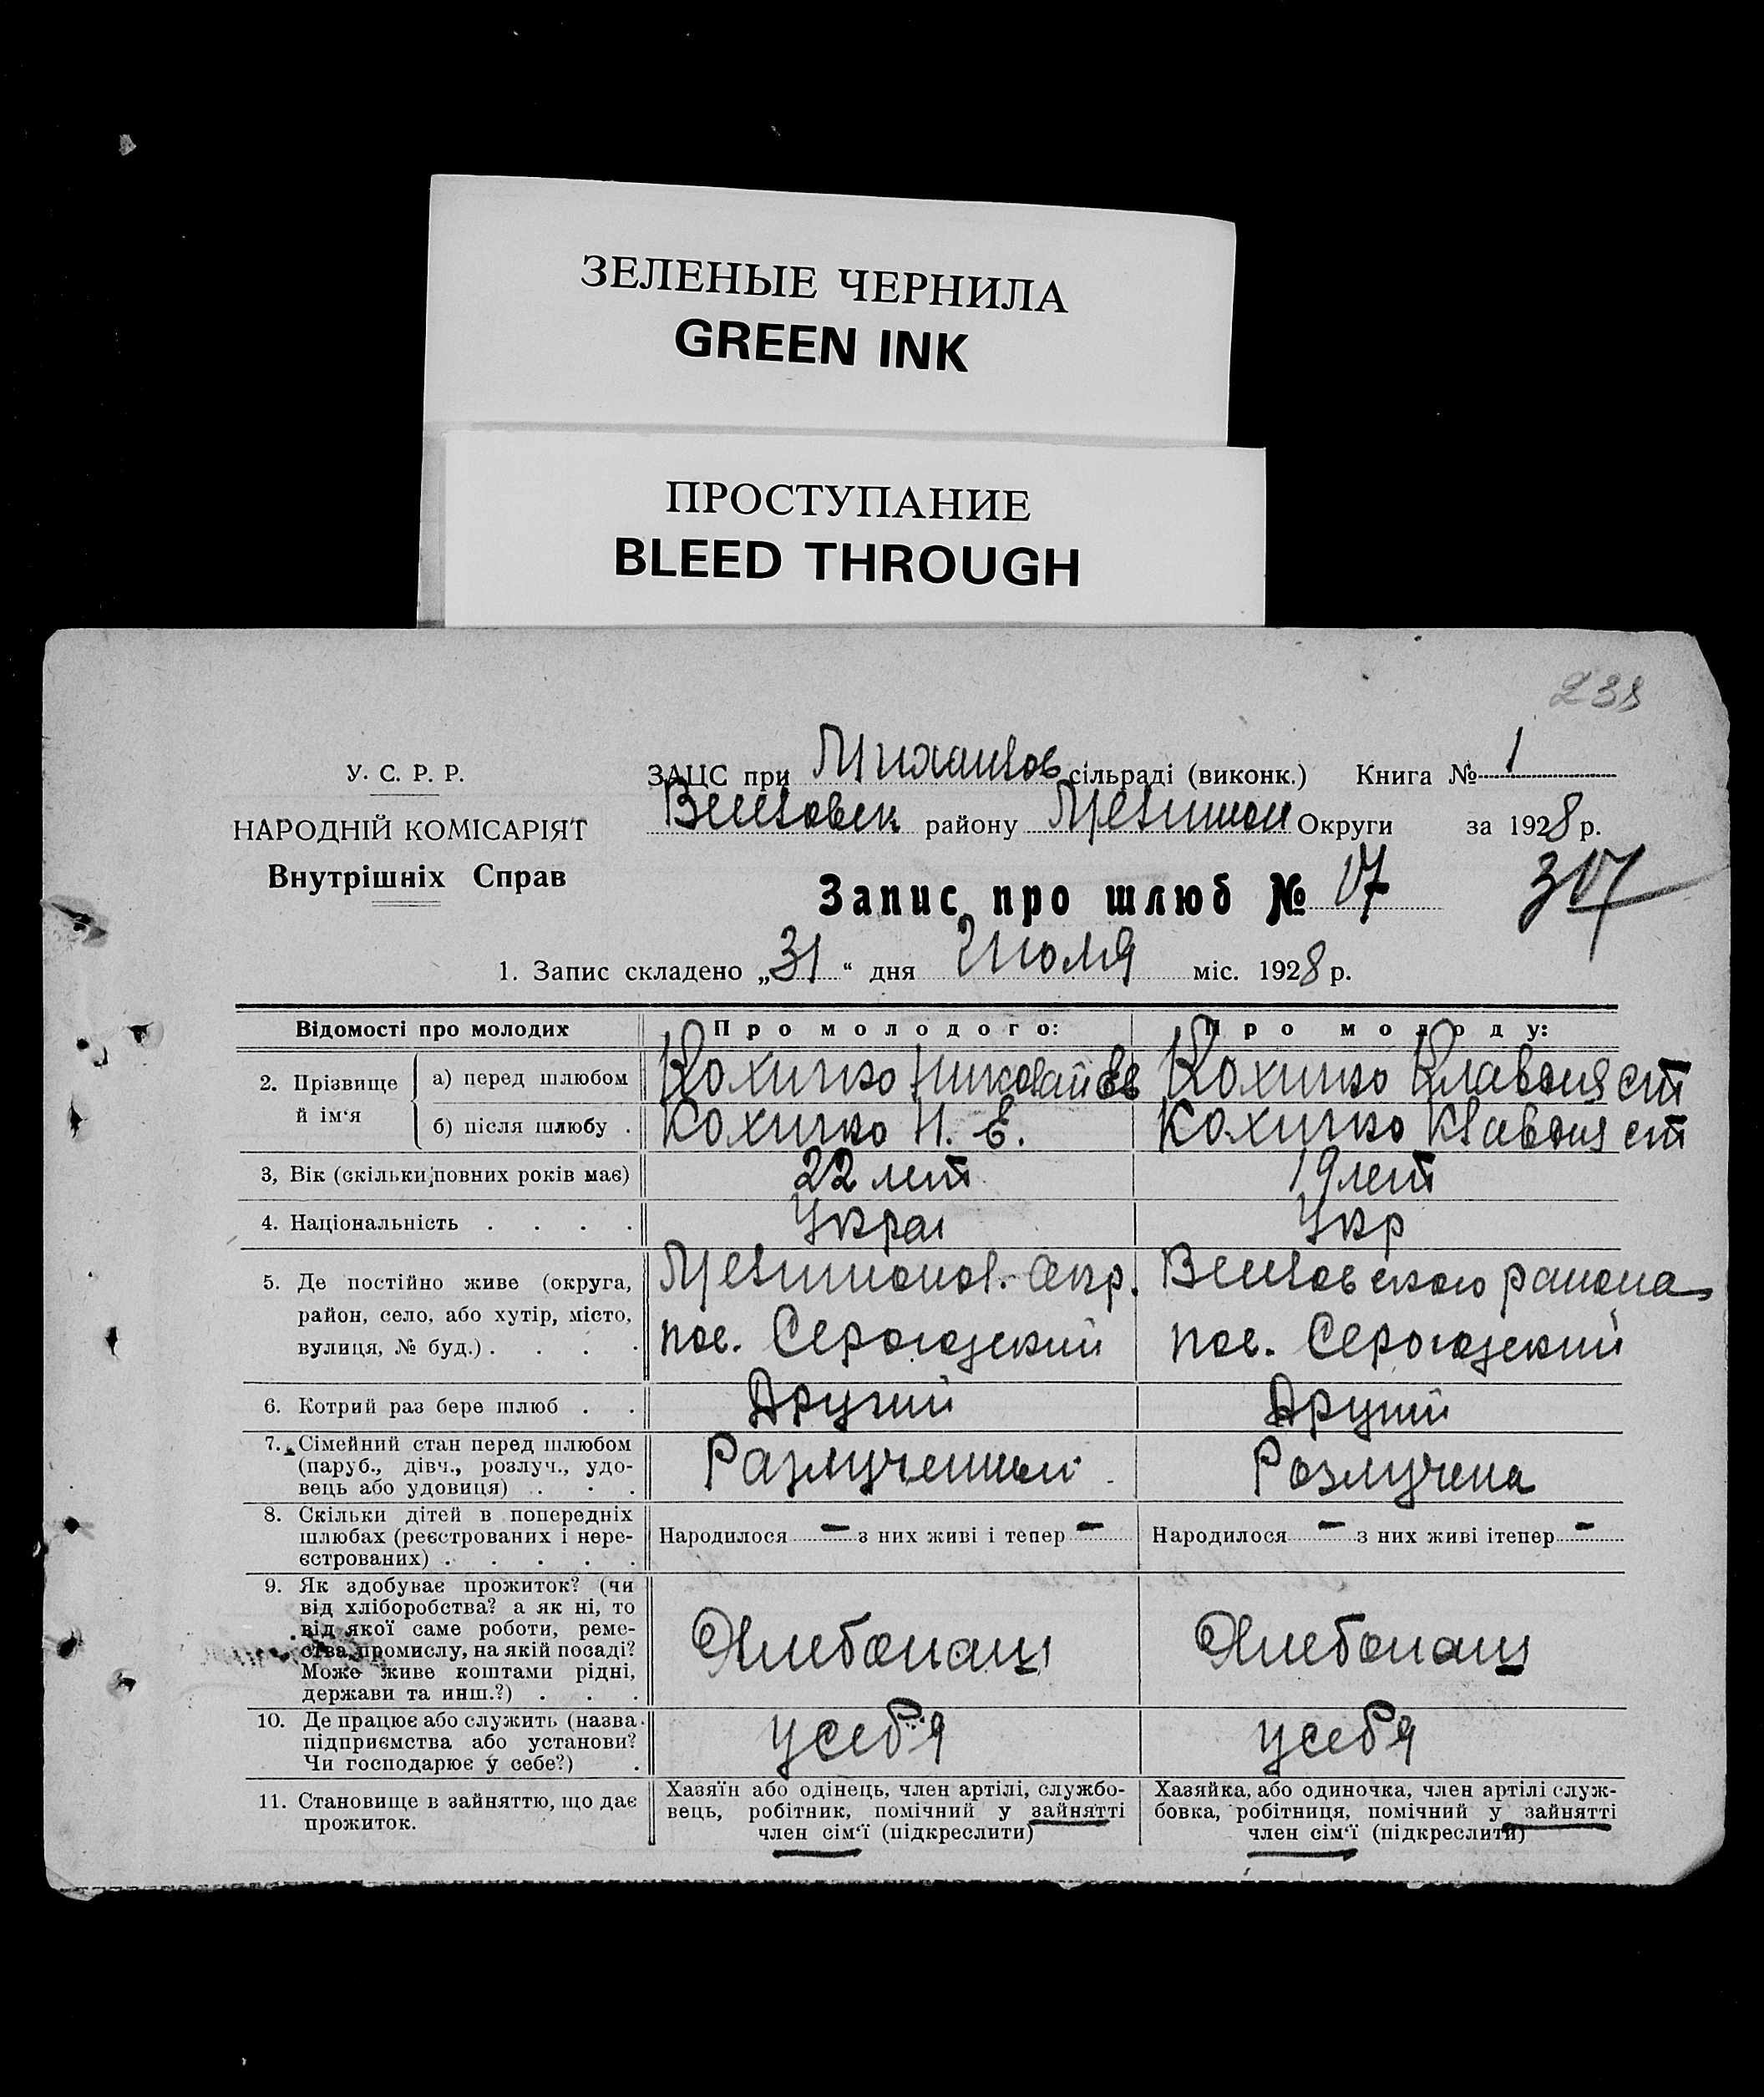 ЗЕЛЕНЫЕ ЧЕРНИЛА
GREEN INK
ПРОСТУПАНИЕ
BLEED THROUGH
238
У. С. Р. Р.
НАРОДНІЙ КОМІСАРІЯТ
Внутрішніх Справ
ЗАЦС при Михайлов сільраді (виконк.) Книга № 1
району Округи за 1928 р.
Запис про шлюб № 17 317
1. Запис складено „31“ дня Июля міс. 1928 р.
Відомості про молодих Про молодого: Про молоду:
2. Прізвище й ім‘я
а) перед шлюбом Кохичко Николай Ев Кохичко Клавдия
б) після шлюбу . Кохичко Н. Е. Кохичко Клавдия
3, Вік (скільки повних років має) 22 лет 19 лет
4. Національність . . . . Укра Укр
5. Де постійно живе (округа, район, село, або хутір, місто, вулиця, № буд.) . . . .
окр. района
пос. Серогозский пос. Серогозский
6. Котрий раз бере шлюб . . Другий Другий
7. Сімейний стан перед шлюбом (паруб., дівч., розлуч., удовець або удовиця) . . . Разлученный Розлучена
8. Скільки дітей в попередніх шлюбах (реєстрованих і нереєстрованих) . . . . .
Народилося – з них живі і тепер – Народилося – з них живі ітепер –
9. Як здобуває прожиток? (чи від хліборобства? а як ні, то від якої саме роботи, ремества, промислу, на якій посаді? Може живе коштами рідні, держави та инш.?) . . .
Хлебопаш Хлебопаш
10. Де працює або служить (назва підприємства або установи? Чи господарює у себе?) .
усебя усебя
11. Становище в зайняттю, що дає прожиток.
Хазяїн або одінець, член артілі, службовець, робітник, помічний у зайнятті член сім‘ї (підкреслити)
Хазяйка, або одиночка, член артілі службовка, робітниця, помічний у зайнятті член сім‘ї (підкреслити)